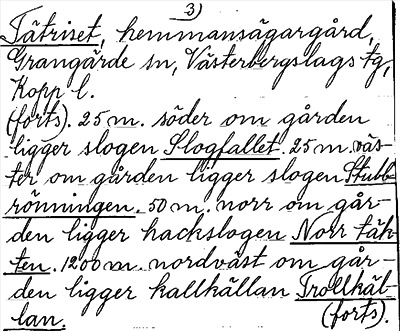 3)
Tätriset, hemmansägargård,
Grangärde sn, Västerbergslags tg,
Kopp l.
(forts). 25 m. söder om gården
ligger slogen Slogfallet. 25 m. väs-
ter om gården ligger slogen Stubb-
rönningen. 50 m. norr om går-
den ligger hackslogen Norr täk-
ten. 1200 m. nordväst om går-
den ligger kallkällan Trollkäl-
lan. (forts).